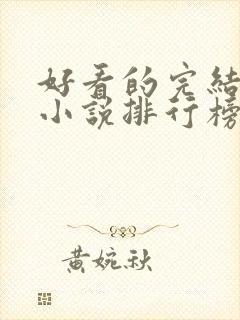 好看的完結
小說排行榜
黃婉秋